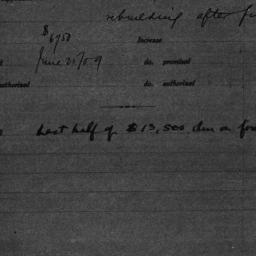 rebuilding after
$6750 Increase
June 21/09 do. promised
authorized do. authorized
last half of $13,500 due on